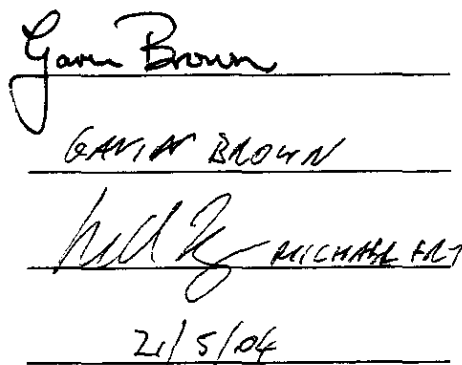 Gavin Brown
GAVIN BROWN
MICHAEL
21/5/04